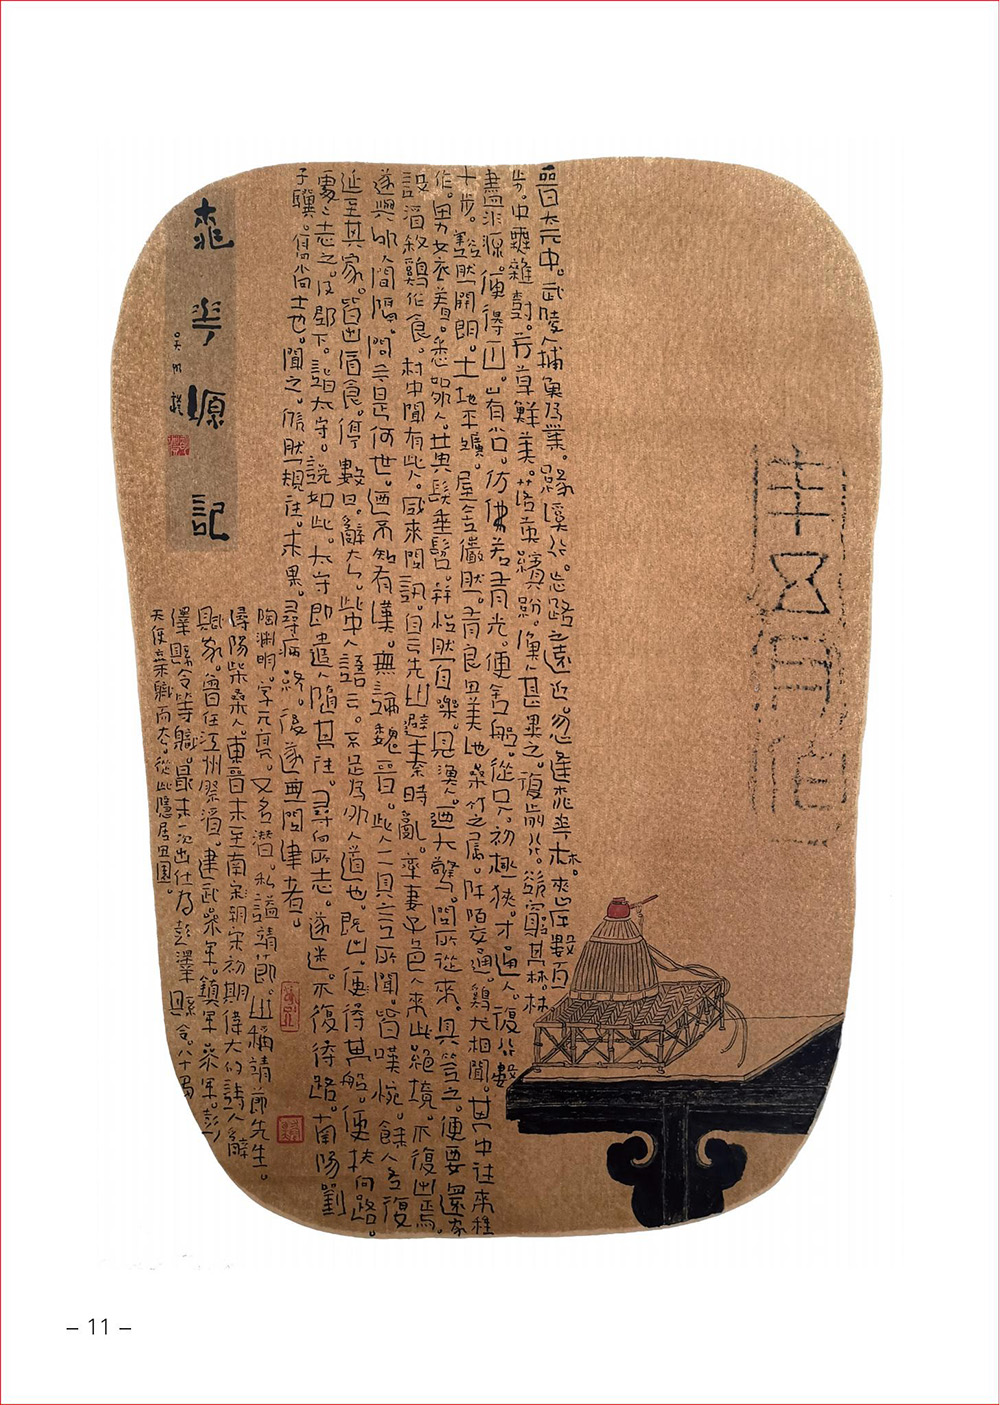 晉太元中。武陵人捕魚為業。緣溪行。忘路之遠近。忽逢桃華林。夾岸數百
步。中無雜樹。芳草鮮美。落英繽紛。漁人甚異之。復前行。欲窮其林。林
盡水源。便得一山。山有小口。仿佛若有光。便舍船。從口入。初極狹。才通人。復行數
十步。豁然開朗。土地平曠。屋舍儼然。有良田美池桑竹之屬。阡陌交通。雞犬相聞。其中往來種
作。男女衣著。悉如外人。黃髮垂髫。并怡然自樂。見漁人。迺大驚。問所從來。具答之。便要還家
設酒殺雞作食。村中聞有此人。咸來問訊。自云先世避秦時亂。率妻子邑人來此絕境。不復出焉。
遂與外人間隔。問今是何世。迺不知有漢。無論魏晉。此人一一具言所聞。皆嘆惋。餘人各復
延至其家。皆出酒食。停數日。辭去。此中人語云。不足為外人道也。既出。便得其船。便扶向路。
處處志之。及郡下。詣太守。說如此。太守即遣人隨其往。尋向所志。遂迷。不復得路。南陽劉
子驥。高尚士也。聞之。欣然規往。未果。尋病終。後遂無問津者。
陶淵明。字元亮。又名潛。私謚靖節。世稱靖節先生。
潯陽柴桑人。東晉末至南宋朝宋初期偉大的詩人辭
賦家。曾任江州祭酒。建武參軍。鎮軍參軍。彭
澤縣令等職。最末一次出仕為彭澤縣令。八十多
天便棄職而去。從此隱居田園。
桃華源記
– 11 –